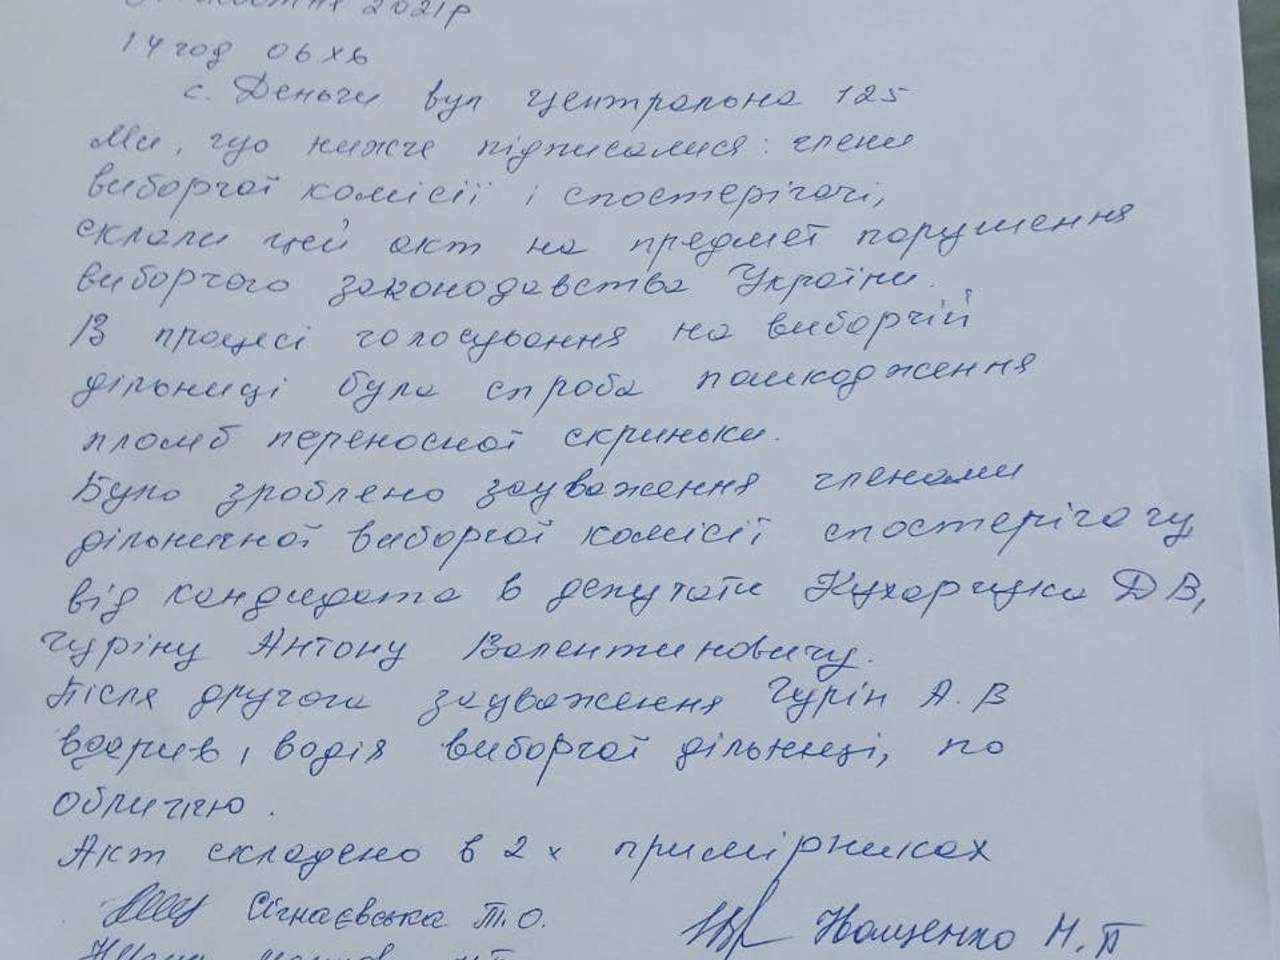 2021р
14 год 06 хв
с. Деньги вул Центральна 125
Ми, що нижче підписалися: члени
виборчої комісії і спостерігачі,
склали цей акт на предмет порушення
виборчого законодавства України.
В процесі голосування на виборчій
дільниці була спроба пошкодження
пломб переносної скриньки.
Було зроблено зауваження членами
дільничної виборчої комісії спостерігачу
від кандидата в депутати Кухарчука Д В,
Гуріну Антону Валентиновичу.
Після другого зауваження Гурін А. В
вдарив, водія виборчої дільниці, по
обличчю.
Акт складено в 2 х примірниках
Сігнаєвська Т.О. Нощенко Н.П